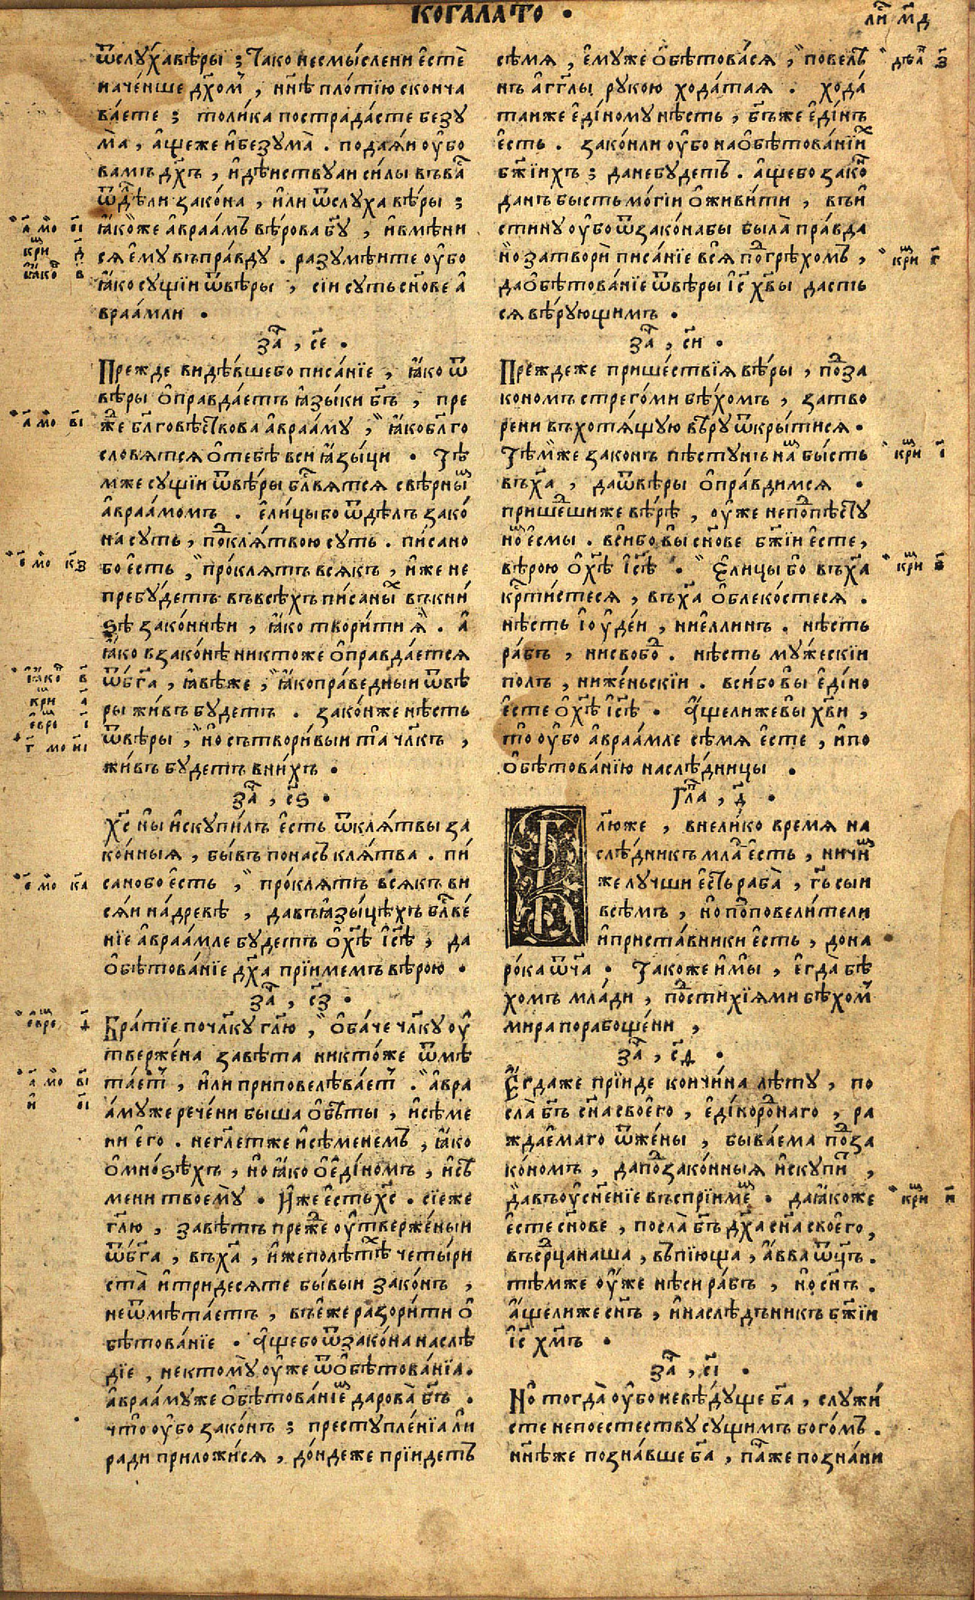 КОГАЛАТО .
ли҃ м҃д
ѿслꙋ́ха вѣ́ры ; Та́ко несмы́слени є҆стѐ
наче́нше дх҃ом , нн҃ѣ пло́тїю сконча
ва́ете ; толи́ка пострада́сте безꙋ
ма̀ , а҆́ще же и҆ безꙋма̀ . подаѧ́и ᲂу҆́бо
ва́мъ дх҃ъ , и҆ дѣ́йствꙋаи си́лы въ ва́
ѿдѣ́лли зако́на , и҆ли ѿслꙋ́ха вѣ́ры ;
ꙗ҆́коже а҆враа́мъ вѣ́рова бг҃ꙋ , и҆ вмѣни
сѧ є҆мꙋ̀ въ пра́вдꙋ . разꙋмѣ́ите ᲂу҆́бо
ꙗ҆́ко сꙋ́щїи ѿвѣ́ры , сїи сꙋ́ть сн҃ове а҆
враа́мли .
за҃ , с҃е .
Пре́жде ви́дѣвше бо писа́нїе , ꙗ҆́ко ѿ
вѣ́ры ѡ҆правда́етъ ꙗ҆зы́ки бг҃ъ , пре
же бл҃говѣ́ствова а҆враа́мꙋ , ꙗ҆́ко бл҃го
словѧ́тсѧ ѡ҆ тебѣ̀ вси ꙗ҆зы́ци . Тѣ́
мже сꙋ́щїи ѿвѣ́ры бл҃вѧ́тсѧ с вѣ́рны
а҆враа́момъ . є҆ли́цы бо ѿдѣ́лъ зако́
на сꙋ́ть , по клѧ́твою сꙋ́ть . пи́сано
бо є҆́сть , про́клѧтъ всѧ́къ , и҆́же не
пребꙋ́детъ въ всѣ́хъ пи́саны въ кни́
ѕѣ зако́ннѣи , ꙗ҆́ко твори́ти ѧ҆̀ . а҆
ꙗ҆́ко в зако́нѣ никто́же ѡ҆правда́етсѧ
ѿ бг҃а , ꙗ҆́вѣ же , ꙗ҆́ко пра́ведныи ѿ вѣ
ры жи́въ бꙋ́детъ . зако́н же нѣ́сть
ѿвѣ́ры , но сътвори́выи та̀ чл҃къ ,
жи́въ бꙋ́детъ в ни́хъ .
за҃ , с҃ѕ .
Хс҃ ны и҆скꙋпи́лъ є҆́сть ѿ клѧ́твы за
ко́нныѧ , бы́въ по на́съ клѧ́тва . пи́
сано бо є҆́сть , про́клѧтъ всѧ́къ ви
сѧ́и на́ древѣ , да въ ꙗ҆зы́цѣхъ бл҃ве́
нїе а҆враа́мле бꙋ́детъ ѡ҆ хѣ҃ і҆сѣ҃ , да
ѡ҆бѣтова́нїе дх҃а прїи́мемъ вѣ́рою .
за҃ , с҃з .
Бра́тїе по чл҃кꙋ гл҃ю , ѡ҆ба́че чл҃кꙋ ᲂу҆
твержена завѣ́та никто́же ѿмѣ
та́ет , и҆ли приповелѣва́ет . а҆вра
а́мꙋ же рече́ни бы́ша ѡ҆бѣ́ты , и҆ сѣ́ме
ни є҆го . не гл҃етже и҆ сѣ́менемъ , ꙗ҆́ко
ѡ҆ мно́ѕѣхъ , но ꙗ҆́ко ѡ҆ є҆ди́номъ , и҆ сѣ́
мени твоемꙋ̀ . И҆́же є҆́сть хс҃ . сїе же
гл҃ю , завѣ́тъ пре́же ᲂу҆тверже́ныи
ѿ бг҃а , въ ха҃ , и҆́же по лѣ́тѣ четы́ри
ста̀ и҆ три́десѧте бы́выи зако́нъ ,
не ѿмѣта́етъ , въ є҆́же разори́ти ѡ҆
бѣтова́нїе . А҆́ще бо ѿ зако́на наслѣ́
дїе , не ктомꙋ̀ ᲂу҆́же ѿ ѡ҆бѣтова́нїа .
а҆враа́мꙋ же ѡ҆бѣтова́нїе дарова̀ бг҃ъ .
что̀ ᲂу҆́бо зако́нъ ; престꙋпле́нїа ли
ради приложи́сѧ , до́ндеже прїи́детъ
сѣ́мѧ , є҆мꙋ́же ѡ҆бѣтова́сѧ , повелѣ
нъ а҆́гг҃лы рꙋко́ю хода́таѧ . хода́
таи же є҆ди́номꙋ нѣ́сть , бг҃ъ же є҆ди́нъ
є҆́сть . зако́н ли ᲂу҆́бо на ѡ҆бѣтова́нїи
бж҃їихъ ; да не бꙋ́детъ . а҆́ще бо зако
да́нъ бы́сть могі́и ѡ҆живи́ти , въ и҆
стинꙋ ᲂу҆́бо ѿ зако́на бы была̀ пра́вда
но затворѝ писа́нїе всѧ̀ по грѣхо́мъ ,
да ѡ҆бѣтова́нїе ѿвѣ́ры і҆с҃ хв҃ы да́сть
сѧ вѣ́рꙋющимъ .
за҃ , с҃и .
Пре́жде же прише́ствїѧ вѣ́ры , по за
ко́номъ стрего́ми бѣ́хомъ , затво
ре́ни въ хотѧ́щꙋю вѣ́рꙋ ѿкры́тисѧ .
Тѣ́мже зако́нъ пѣ́стꙋнъ на́ бы́сть
въ ха҃ , да ѿвѣ́ры ѡ҆пра́вдимсѧ .
прише́шиже вѣ́рѣ , ᲂу҆́же не по пѣ́стꙋ
но є҆смы̀ . вси́ бо вы сн҃ове бж҃їи є҆сте ,
вѣ́рою ѡ҆ хѣ҃ і҆сѣ҃ . Є҆ли́цы бо въ ха҃
кр҃ти́стесѧ , въ ха҃ ѡ҆блеко́стесѧ .
нѣ́сть і҆оуде́и , ни є҆́ллинъ . нѣ́сть
ра́бъ , ни свобо́ . нѣ́сть мꙋ́жескїи
по́лъ , ни же́ньскїи . вси́ бо вы̀ є҆ди́но
є҆сте ѡ҆ хѣ҃ і҆сѣ҃ . А҆́ще ли же вы̀ хв҃и ,
то̀ ᲂу҆́бо а҆враа́мле сѣ́мѧ є҆сте , и҆ по
ѡ҆бѣтова́нїю наслѣ́дницы .
Гла҃ , д҃ .
Глю҃же , в нели́ко вре́мѧ на
слѣ́дникъ мла є҆́сть , ничи́
же лꙋ́чши є҆́сть раба̀ , гд҃ь сыи
всѣ́мъ , но по повели́тели
и҆ приста́вники є҆́сть , до на
ро́ка ѿч҃а . Та́коже и҆ мы̀ , є҆гда̀ бѣ́
хомъ мла́ди , по стихі́ѧми бѣ́хом
ми́ра порабоще́ни ,
за҃ , с҃д .
Є҆гда́же прїи́де кончи́на лѣ́тꙋ , по
сла̀ бг҃ъ сн҃а своего̀ , є҆диноро́наго , ра
жда́емаго ѿжены̀ , быва́ема по за
ко́номъ , да по зако́нныѧ и҆скꙋпи́ ,
да въ ᲂу҆сн҃е́нїе въспрїи́ме . да ꙗ҆́коже
є҆сте сн҃ове , посла̀ бг҃ъ дх҃а сн҃а своего̀ ,
въ срд҃ца на́ша , въпїю́ща , а҆́вва ѿч҃ъ .
тѣ́мже ᲂу҆́же нѣ́си ра́бъ , но сн҃ъ .
а҆́ще ли же сн҃ъ , и҆ наслѣ́дъникъ бж҃їи
і҆с҃ хм҃ъ .
за҃ , с҃і .
Но тогда̀ ᲂу҆́бо не вѣ́дꙋще ба҃ , слꙋжи́
сте не по естествꙋ̀ сꙋ́щимъ бого́мъ .
нн҃ѣ же позна́вше ба҃ , па́че же позна́ни